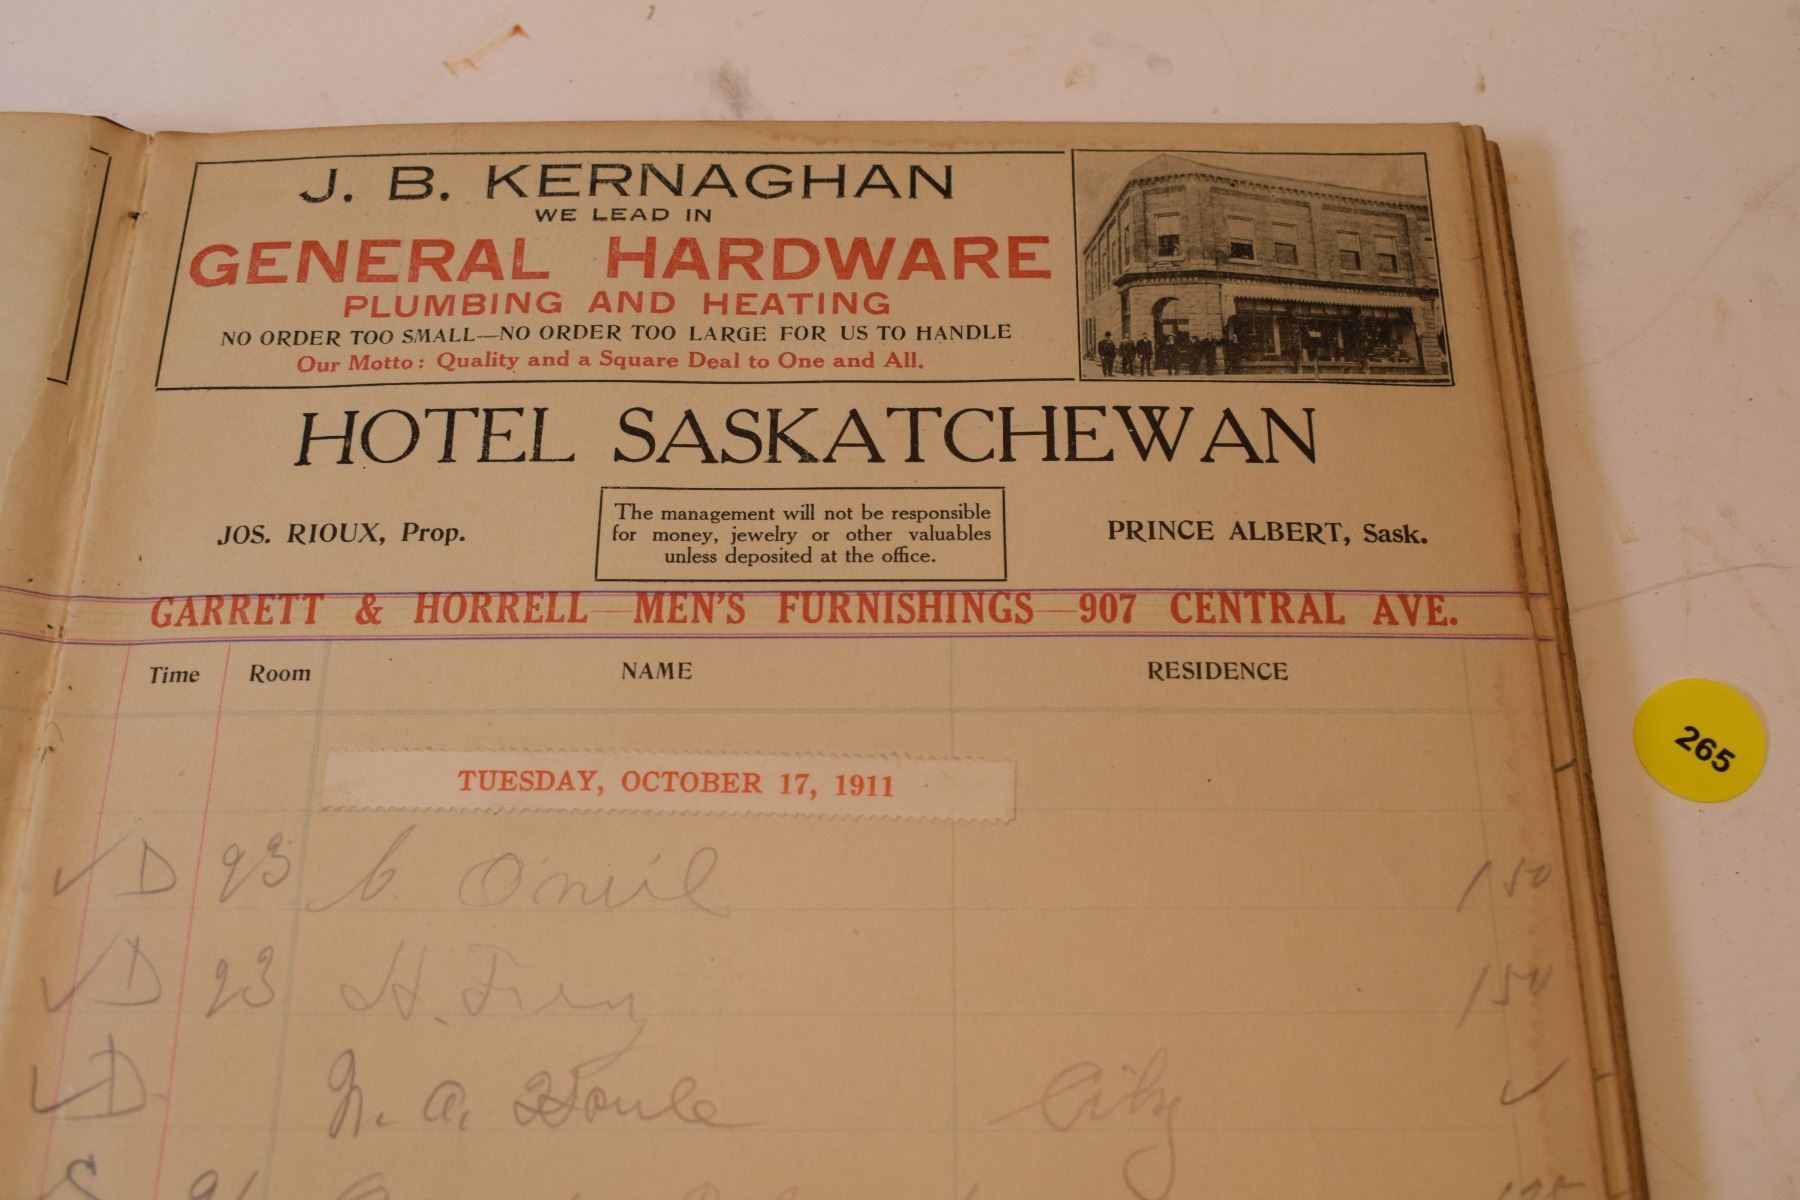 J. B. KERNAGHAN
WE LEAD IN
GENERAL HARDWARE
PLUMBING AND HEATING
NO ORDER TOO SMALL—NO ORDER TOO LARGE FOR US TO HANDLE
Our Motto: Quality and a Square Deal to One and All.
HOTEL SASKATCHEWAN
JOS. RIOUX, Prop.
The management will not be responsible
for money, jewelry or other valuables
unless deposited at the office.
PRINCE ALBERT, Sask.
GARRETT & HORRELL—MEN'S FURNISHINGS—907 CENTRAL AVE.
Time Room NAME RESIDENCE
TUESDAY, OCTOBER 17, 1911
✓ D 93 O'neil 150
✓ D 93 H. 150
✓ D. A. City ✓
265